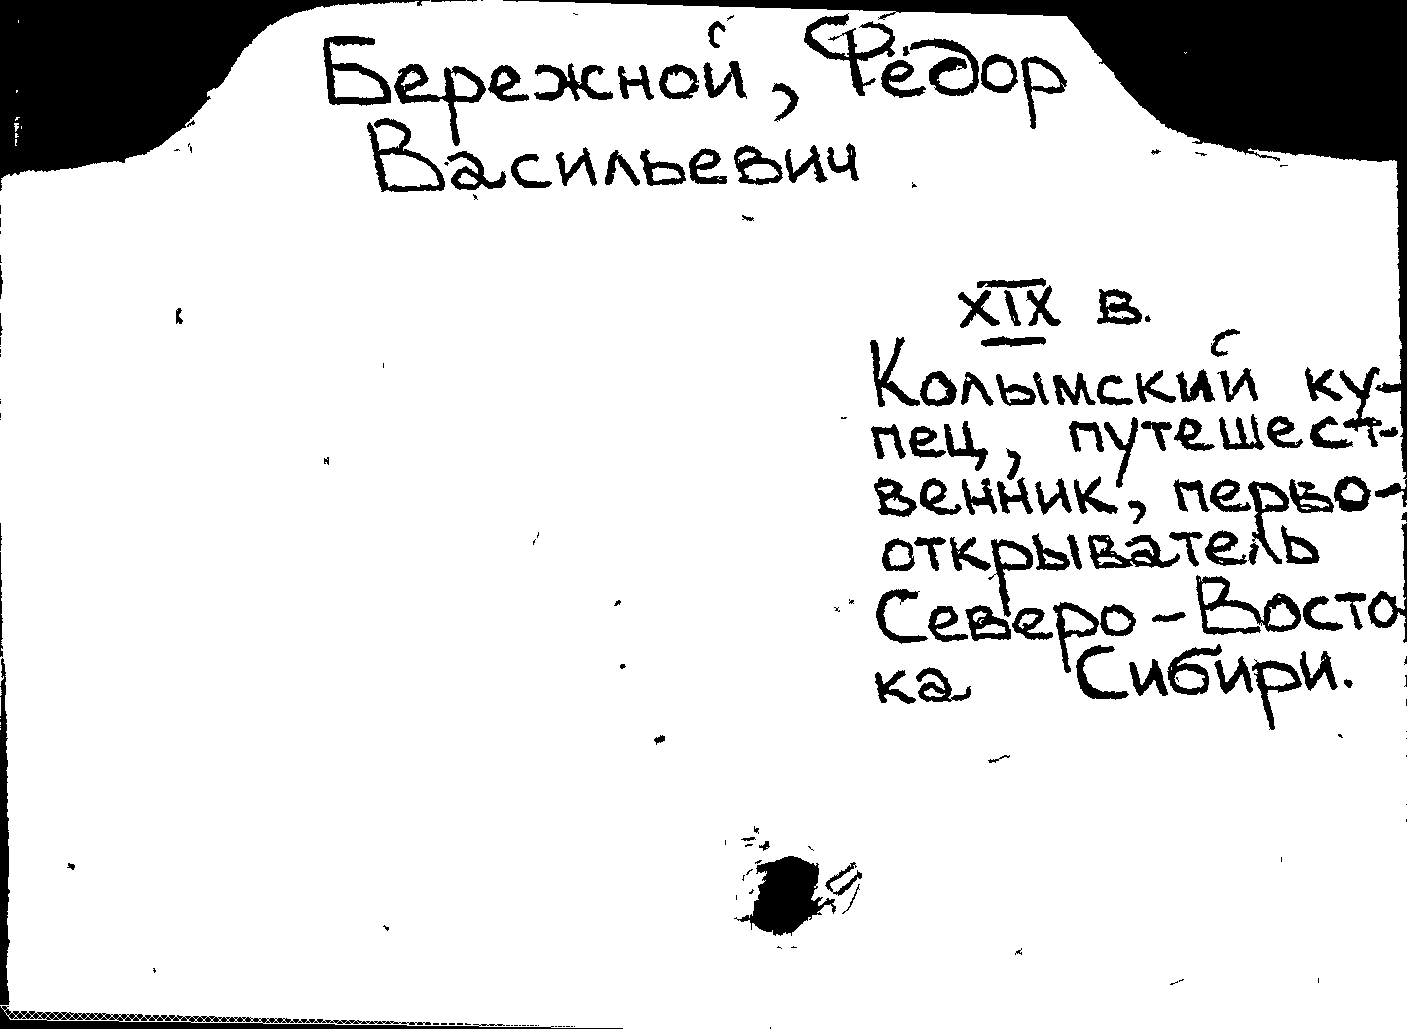 Бережной, Фёдор
Васильевич
XIX в.
Колымский ку-
пец, путешест-
венник, перво-
открыватель
Северо-Восто-
ка Сибири.